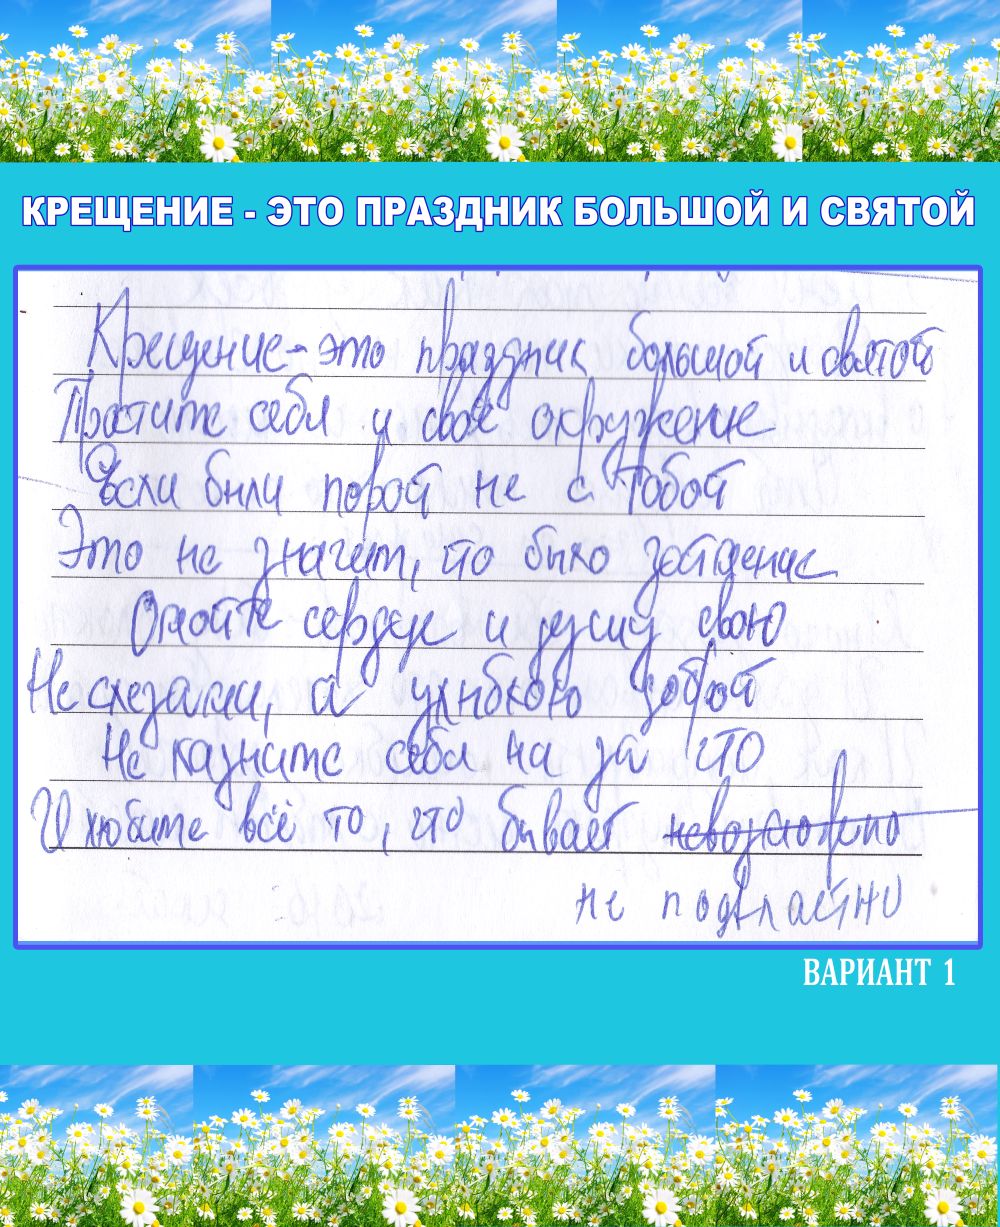 КРЕЩЕНИЕ - ЭТО ПРАЗДНИК БОЛЬШОЙ И СВЯТОЙ
Крещение - это праздник большой и святой
Простите себя и своё окружение
Если были порой не с тобой
Это не значит, что было
Омойте сердце и душу свою
Не слезами, а улыбкою доброй
Не казните себя на за что
И любите всё то, что бывает невозможно
не подвластно
ВАРИАНТ 1